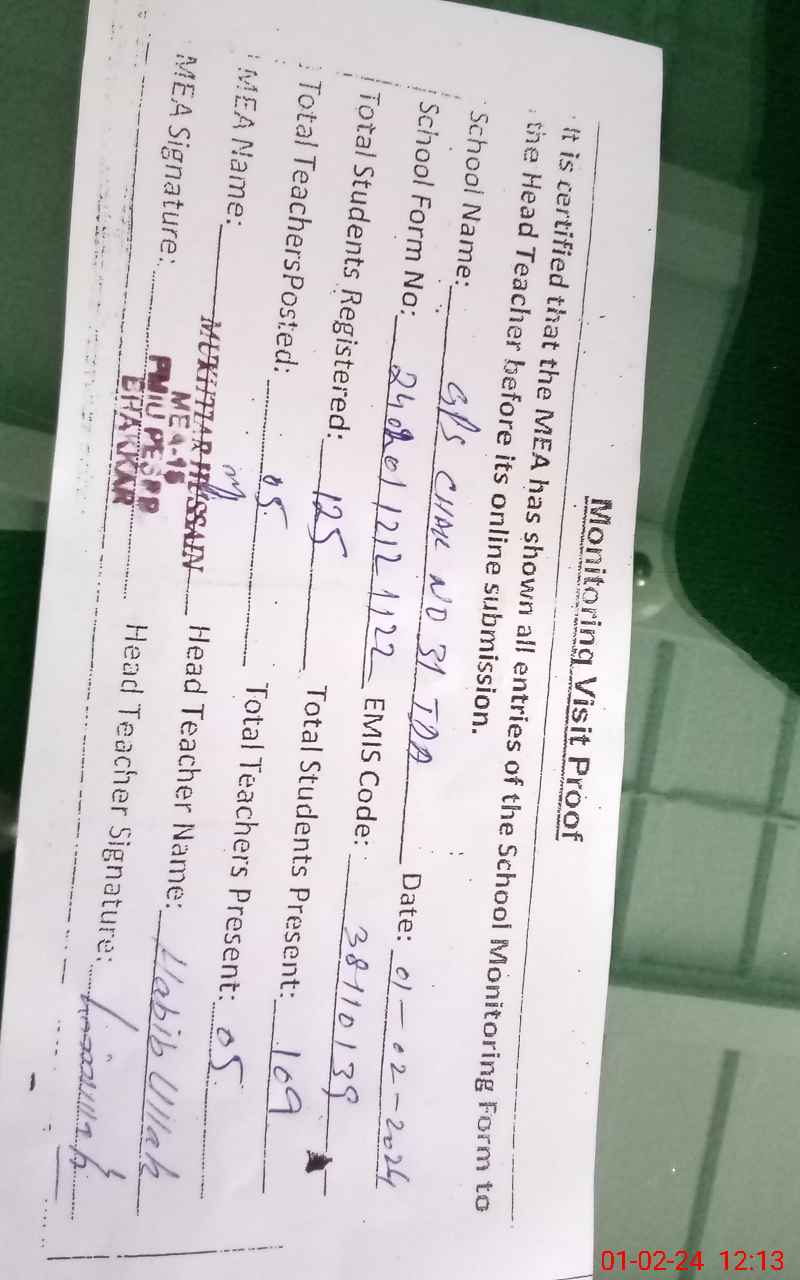 Monitoring Visit Proof
It is certified that the MEA has shown all entries of the School Monitoring Form to
the Head Teacher before its online submission.
School Name: GPS CHAK NO 31 TDA Date: 01-02-2024
School Form No: EMIS Code: 38110139
Total Students Registered: 125 Total Students Present: 109
Total Teachers Posted: 05 Total Teachers Present: 05
MEA Name: MUKHTIAR HUSSAIN Head Teacher Name: Habib Ullah
MEA-15
MEA Signature: Head Teacher Signature:
PMIU PESRP
BHAKKAR
01-02-24 12:13